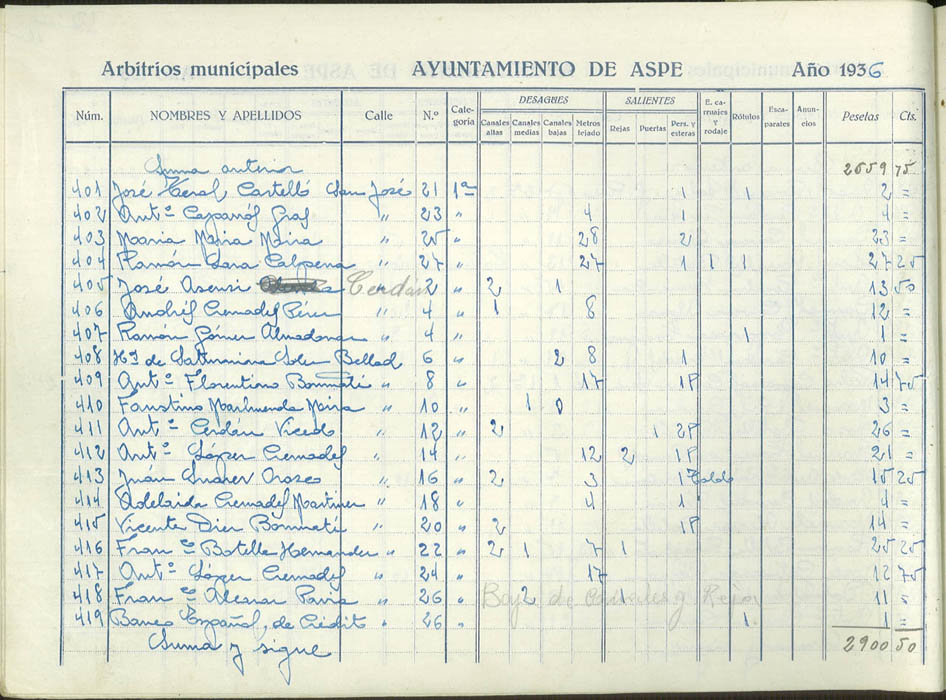 Arbitrios municipales AYUNTAMIENTO DE ASPE Año 1936
Núm. NOMBRES Y APELLIDOS Calle N.º Categoría DESAGUES Canales altas Canales medias Canales bajas Metros tejado SALIENTES Rejas Puertas Pers. y esteras E. carruajes y rodaje Rótulos Escaparates Anuncios Pesetas Cts.
Suma anterior 2559 75
401 José Castelló San José 21 1ª 1 1 2 =
402 Antº 23 " 4 1 4 =
403 Maria Maira Maira " 25 " 28 2 23 =
404 Ramón Calpena " 27 " 27 1 1 1 27 25
405 José Asensi Cerdán 2 " 2 1 13 50
406 Andrés Cremades Pérez " 4 " 1 8 12 =
407 Ramón Gómez Almodovar " 4 " 1 1 =
408 Hos de Saturnina Soler Bellod 6 " 2 8 1 10 =
409 Antº Florentino Bonmatí " 8 " 17 1P 14 75
410 Faustino Maira " 10 " 1 0 3 =
411 Antº Cerdán Vicedo " 12 " 2 1 2P 26 =
412 Antº López Cremades " 14 " 12 2 1P 21 =
413 Juán Suarez Orozco " 16 " 2 3 1 toldo 15 25
414 Adelaida Cremades Martinez " 18 " 4 1 4 =
415 Vicente Diez Bonmatí " 20 " 2 1P 14 =
416 Franco Botella Hernandez " 22 " 2 1 7 1 25 25
417 Antº López Cremades " 24 " 17 12 75
418 Franco Alcaraz Pavia " 26 " 2 1 Baja de Canales y Rejas 11 =
419 Banco Español de Crédito " 26 " 1 1 =
Suma y sigue 2900 50